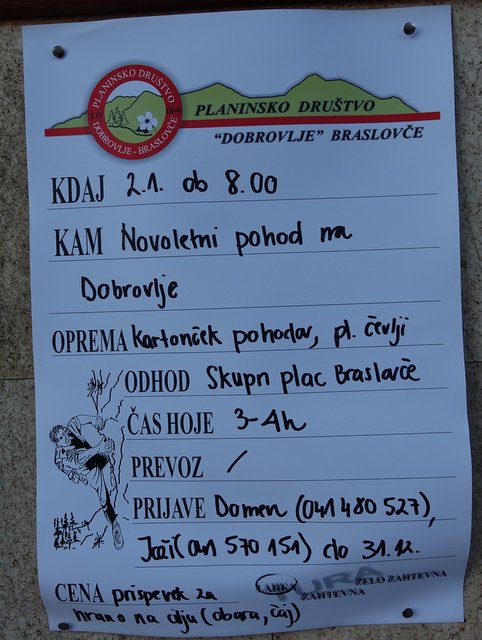 PLANINSKO DRUŠTVO
DOBROVLJE - BRASLOVČE
PLANINSKO DRUŠTVO
"DOBROVLJE" BRASLOVČE
KDAJ 2.1. ob 8.00
KAM Novoletni pohod na
Dobrovlje
OPREMA Kartonček pohodov, pl. čevlji
ODHOD Skupn plac Braslavče
ČAS HOJE 3-4h
PREVOZ /
PRIJAVE Domen (041 480 527),
(041 570 151) do 31.12.
CENA prispevek za
hrano na cilju (obara, čaj)
TURA
LAHKA ZAHTEVNA ZELO ZAHTEVNA